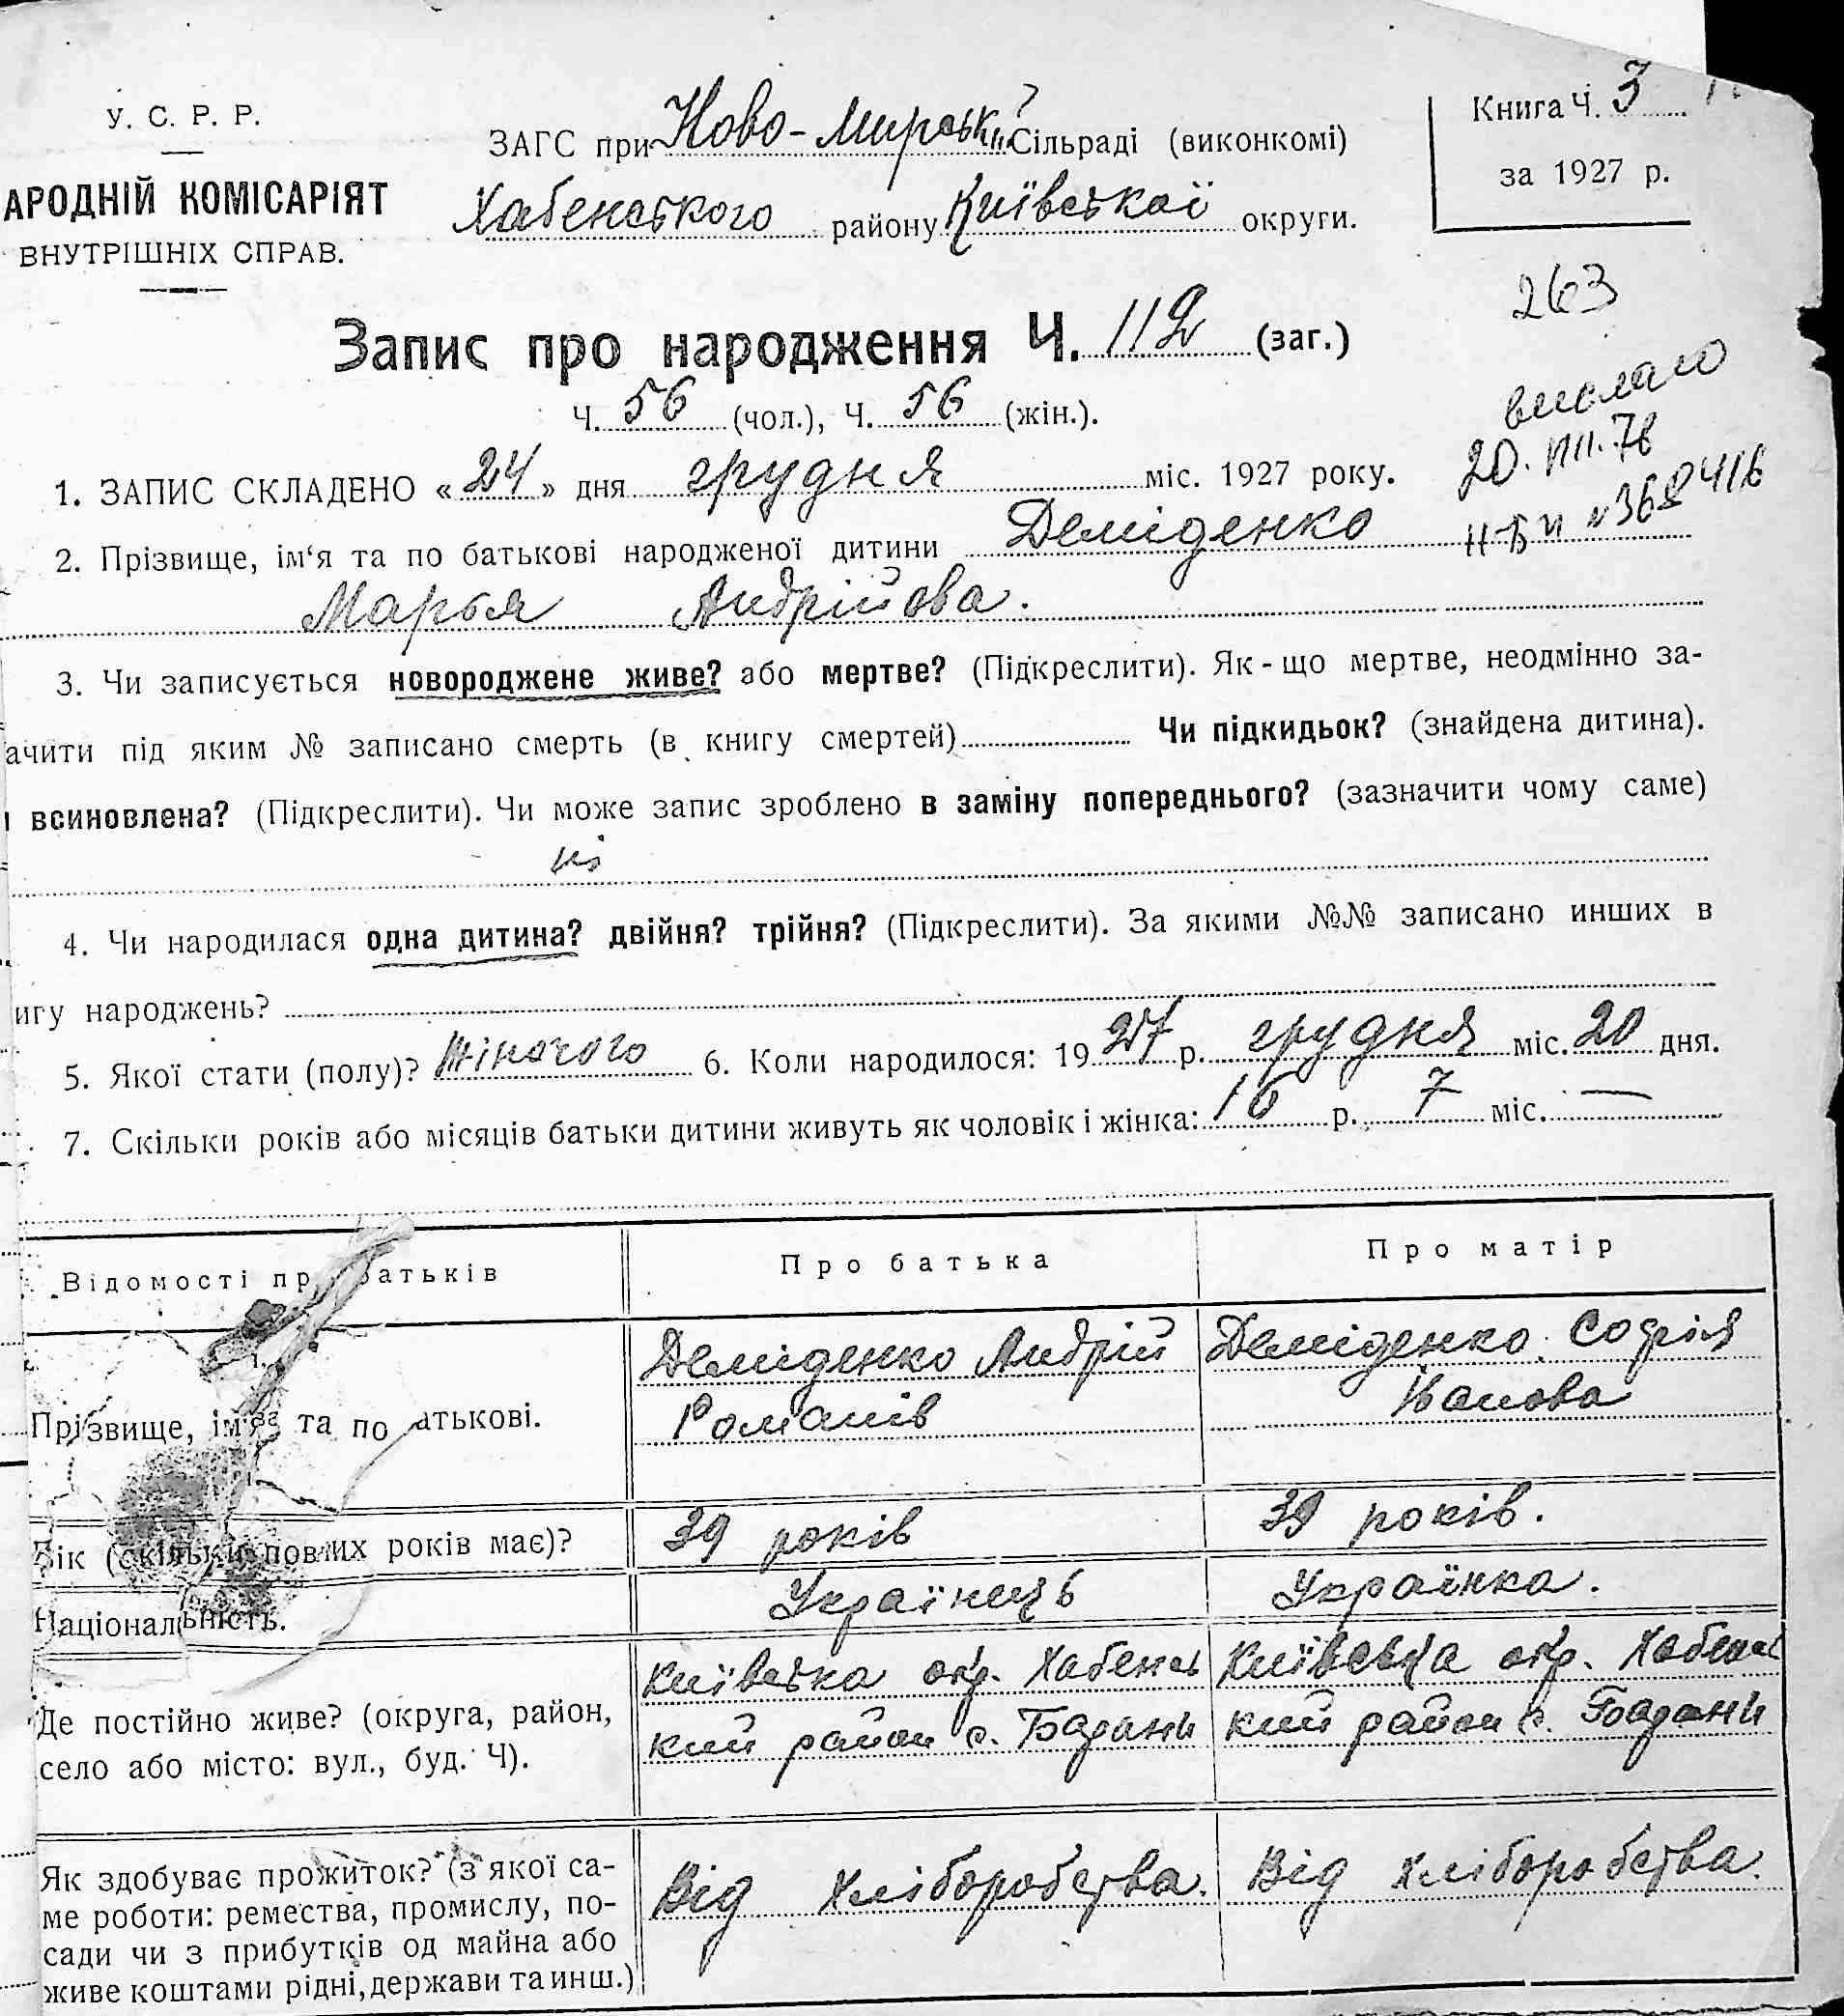 У. С. Р. Р.
АРОДНІЙ КОМІСАРІЯТ
ВНУТРІШНІХ СПРАВ.
ЗАГС при Ново-Мирській Сільраді (виконкомі)
Хабенського району Київської округи.
Книга Ч. 3
за 1927 р.
263
Запис про народження Ч. 112 (заг.)
Ч. 56 (чол.), Ч. 56 (жін.).
выслано
20.VIII.76
№ 368416
1. ЗАПИС СКЛАДЕНО « 24 » дня грудня міс. 1927 року.
2. Прізвище, ім‘я та по батькові народженої дитини Деміденко
Марья Андрійова.
3. Чи записується новороджене живе? або мертве? (Підкреслити). Як-що мертве, неодмінно за-
ачити під яким № записано смерть (в книгу смертей) Чи підкидьок? (знайдена дитина).
и всиновлена? (Підкреслити). Чи може запис зроблено в заміну попереднього? (зазначити чому саме)
ні
4. Чи народилася одна дитина? двійня? трійня? (Підкреслити). За якими №№ записано инших в
игу народжень?
5. Якої стати (полу)? Жіночого 6. Коли народилося: 1927 р. грудня міс. 20 дня.
7. Скільки років або місяців батьки дитини живуть як чоловік і жінка: 16 р. 7 міс. —
Відомості про батьків
Про батька
Про матір
Прізвище, ім'я та по батькові.
Деміденко Андрій
Романів
Деміденко. Софія
Іванова
Вік (скільки повних років має)?
39 років
39 років.
Національність.
Українець
Українка.
Де постійно живе? (округа, район,
село або місто: вул., буд. Ч).
Київська окр. Хабенсь
кий район с. Бадани
Київська окр. Хабенсь
кий район с. Бадани
Як здобуває прожиток? (з якої са-
ме роботи: ремества, промислу, по-
сади чи з прибутків од майна або
живе коштами рідні, держави та инш.)
Від хліборобства.
Від хліборобства.